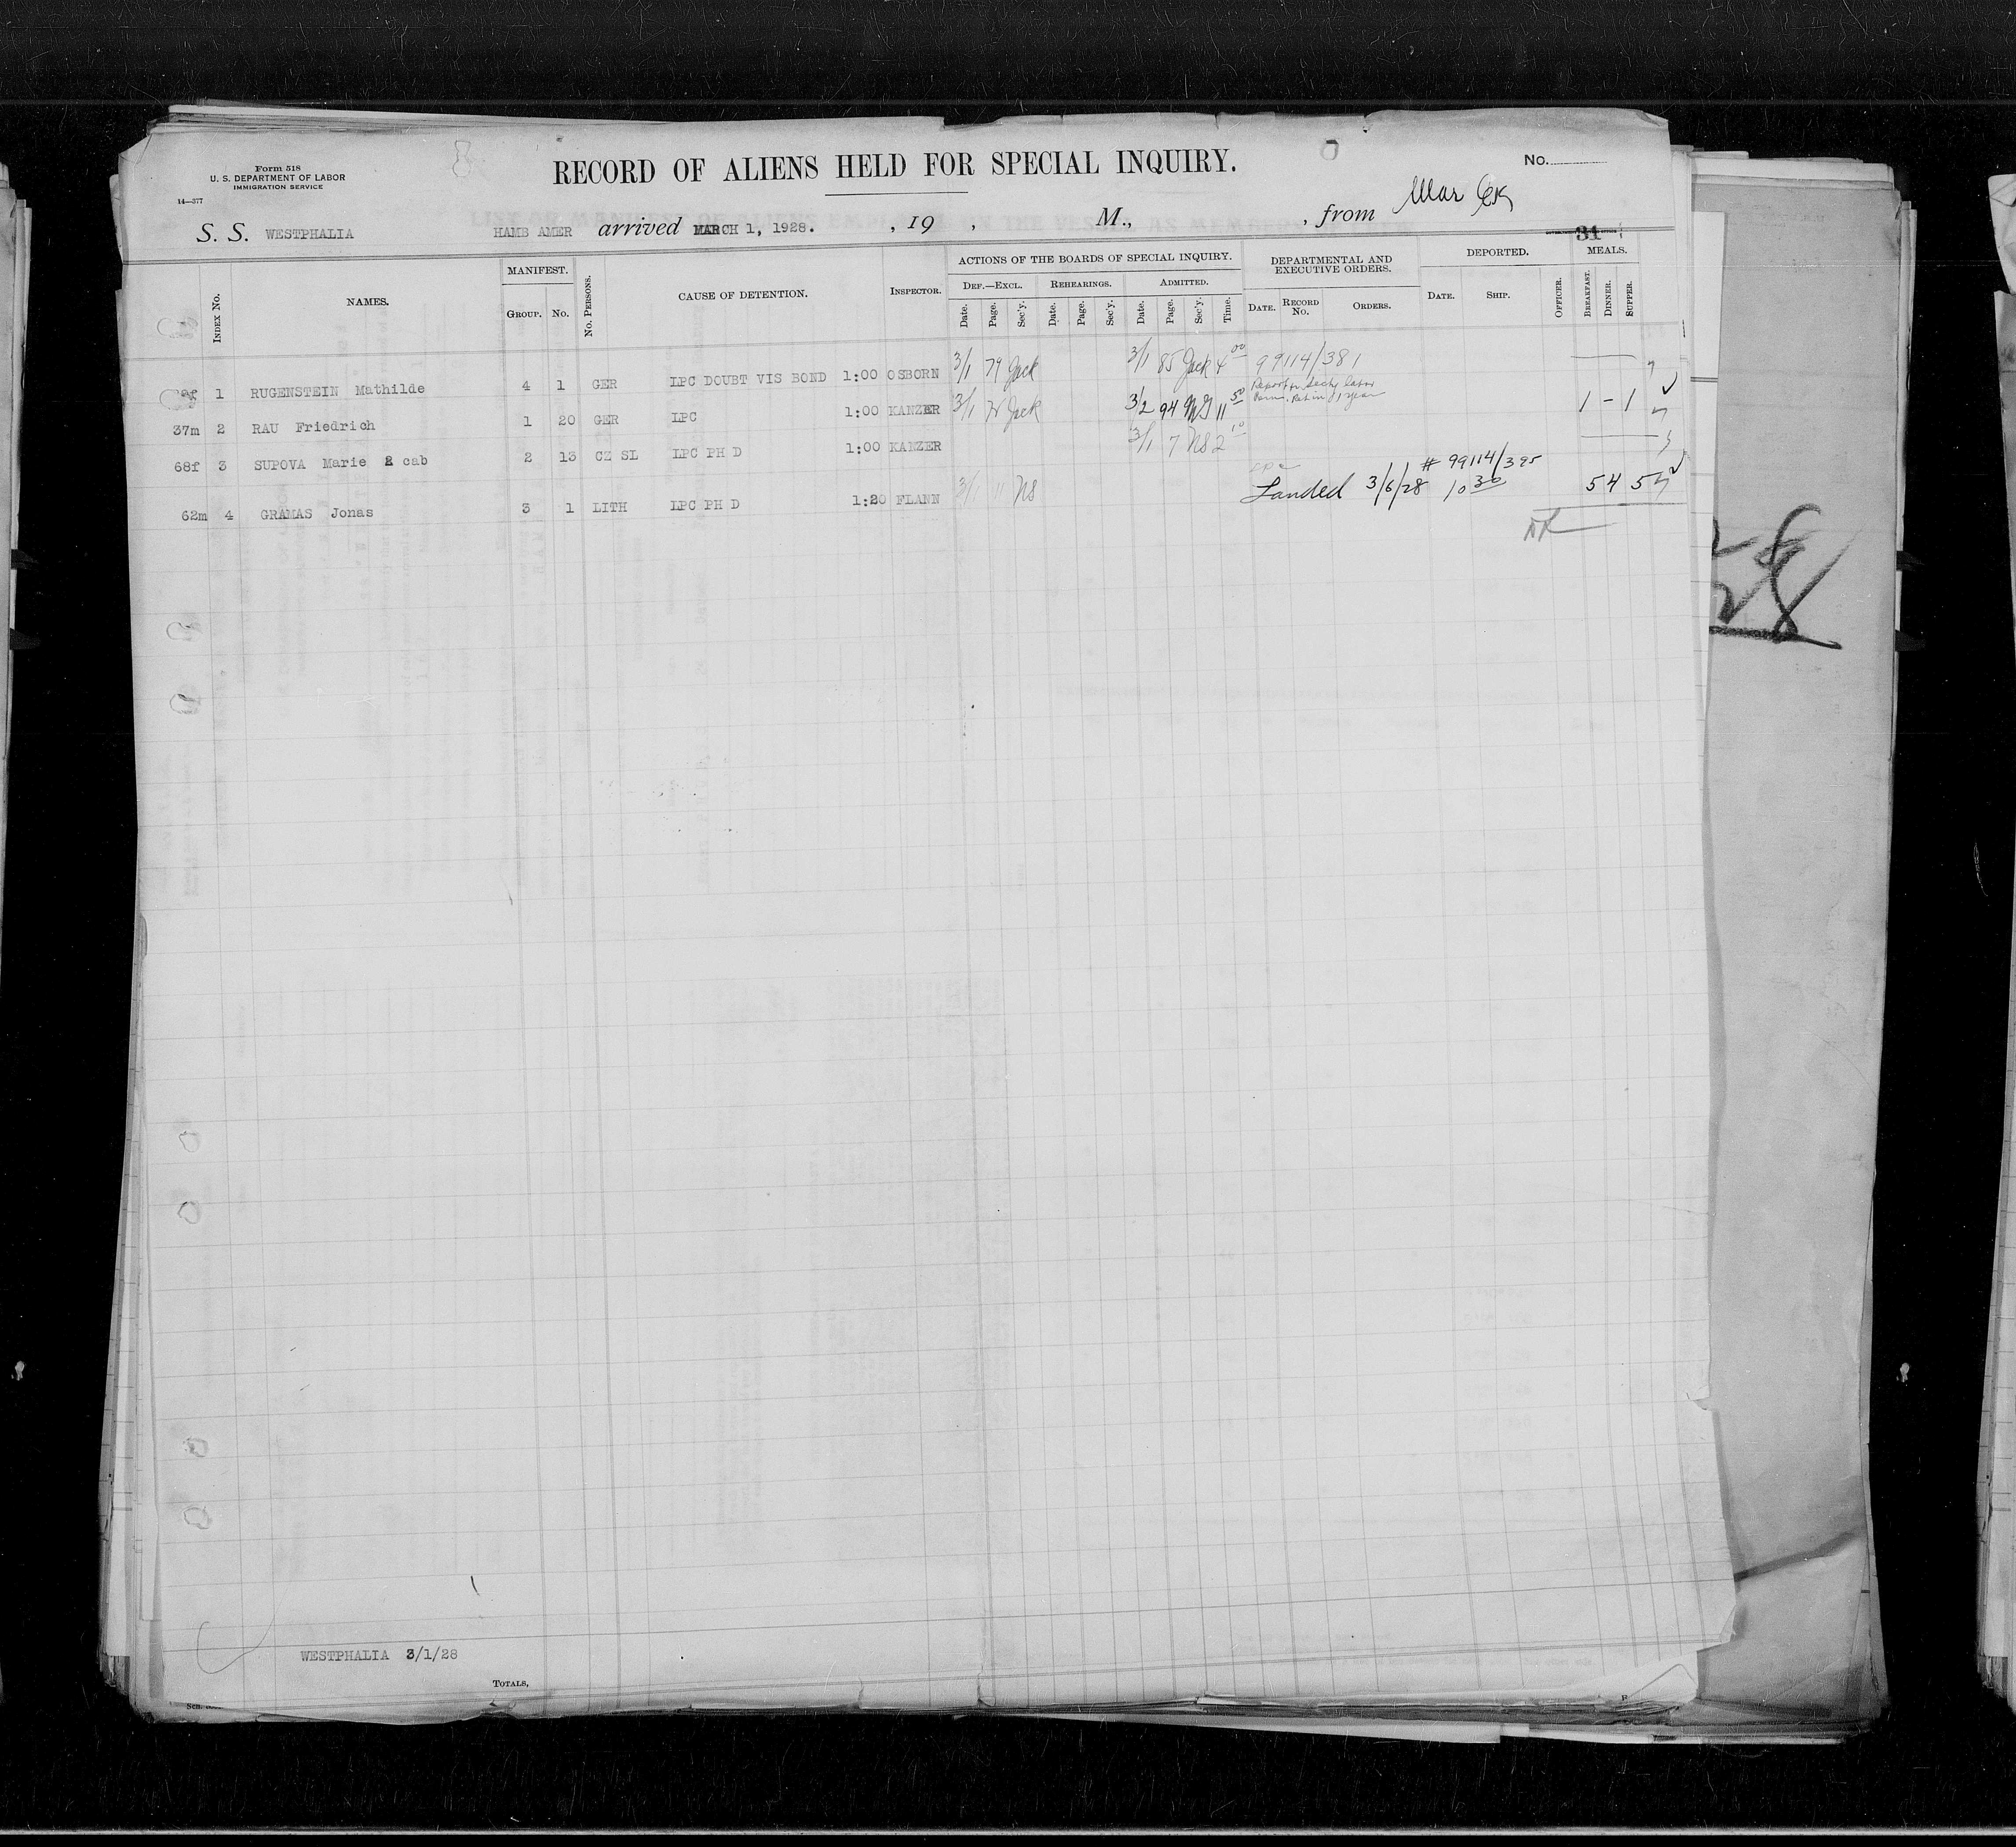 Form 518
U. S. DEPARTMENT OF LABOR
IMMIGRATION SERVICE
14—377
RECORD OF ALIENS HELD FOR SPECIAL INQUIRY.
No.
S. S. WESTPHALIA HAMB AMER arrived MARCH 1, 1928. , 19 , M., , from
31
INDEX No. NAMES. MANIFEST. GROUP. No. No. PERSONS. CAUSE OF DETENTION. INSPECTOR. ACTIONS OF THE BOARDS OF SPECIAL INQUIRY. DEF.—EXCL. Date. Page. Sec'y. REHEARINGS. Date. Page. Sec'y. ADMITTED. Date. Page. Sec'y. Time. DEPARTMENTAL AND EXECUTIVE ORDERS. DATE. RECORD No. ORDERS. DEPORTED. DATE. SHIP. OFFICER. MEALS. BREAKFAST. DINNER. SUPPER.
1 RUGENSTEIN Mathilde 4 1 GER LPC DOUBT VIS BOND 1:00 OSBORN 3/1 79 Jack 3/1 85 Jack 4 00 99114/381
37m 2 RAU Friedrich 1 20 GER LPC 1:00 KANZER 3/1 Jack 3/2 94 11 50 1 - 1
68f 3 SUPOVA Marie 2 cab 2 13 CZ SL LPC PH D 1:00 KANZER 3/1 7 NS 2 10
62m 4 GRAMAS Jonas 3 1 LITH LPC PH D 1:20 FLANN 3/1 11 NS Landed 3/6/28 10 30 # 99114/395 5 4 5
WESTPHALIA 3/1/28
TOTALS,